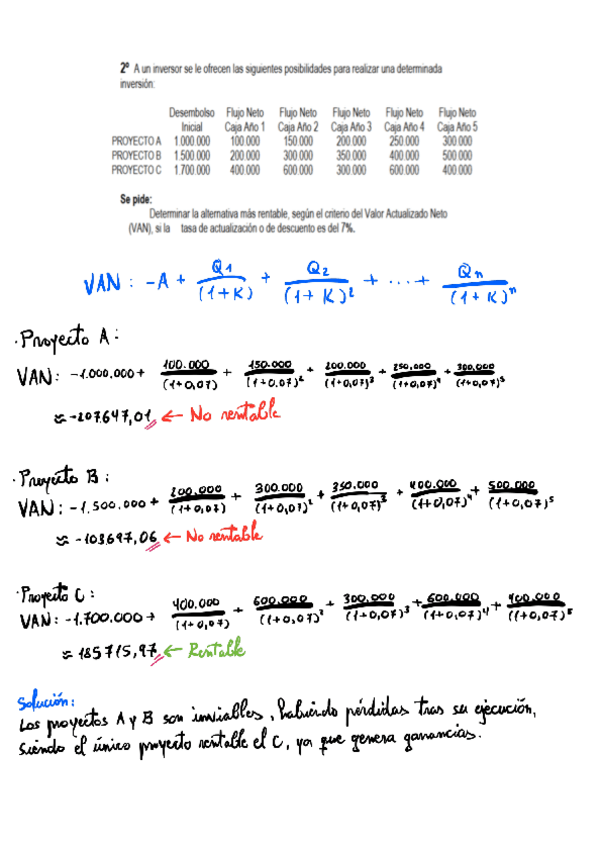 2º A un inversor se le ofrecen las siguientes posibilidades para realizar una determinada
inversión:
Desembolso Flujo Neto Flujo Neto Flujo Neto Flujo Neto Flujo Neto
Inicial Caja Año 1 Caja Año 2 Caja Año 3 Caja Año 4 Caja Año 5
PROYECTO A 1.000.000 100.000 150.000 200.000 250.000 300.000
PROYECTO B 1.500.000 200.000 300.000 350.000 400.000 500.000
PROYECTO C 1.700.000 400.000 600.000 300.000 600.000 400.000
Se pide:
Determinar la alternativa más rentable, según el criterio del Valor Actualizado Neto
(VAN), si la tasa de actualización o de descuento es del 7%.
VAN: -A + Q1/(1+K) + Q2/(1+K)² + ... + Qn/(1+K)ⁿ
· Proyecto A:
VAN: -1.000.000 + 100.000/(1+0,07) + 150.000/(1+0,07)² + 200.000/(1+0,07)³ + 250.000/(1+0,07)⁴ + 300.000/(1+0,07)⁵
≈ -207.647,01 ← No rentable
· Proyecto B:
VAN: -1.500.000 + 200.000/(1+0,07) + 300.000/(1+0,07)² + 350.000/(1+0,07)³ + 400.000/(1+0,07)⁴ + 500.000/(1+0,07)⁵
≈ -103697,06 ← No rentable
· Proyecto C:
VAN: -1.700.000 + 400.000/(1+0,07) + 600.000/(1+0,07)² + 300.000/(1+0,07)³ + 600.000/(1+0,07)⁴ + 400.000/(1+0,07)⁵
≈ 185715,97 ← Rentable
Solución:
Los proyectos A y B son inviables, habiendo pérdidas tras su ejecución,
siendo el único proyecto rentable el C, ya que genera ganancias.